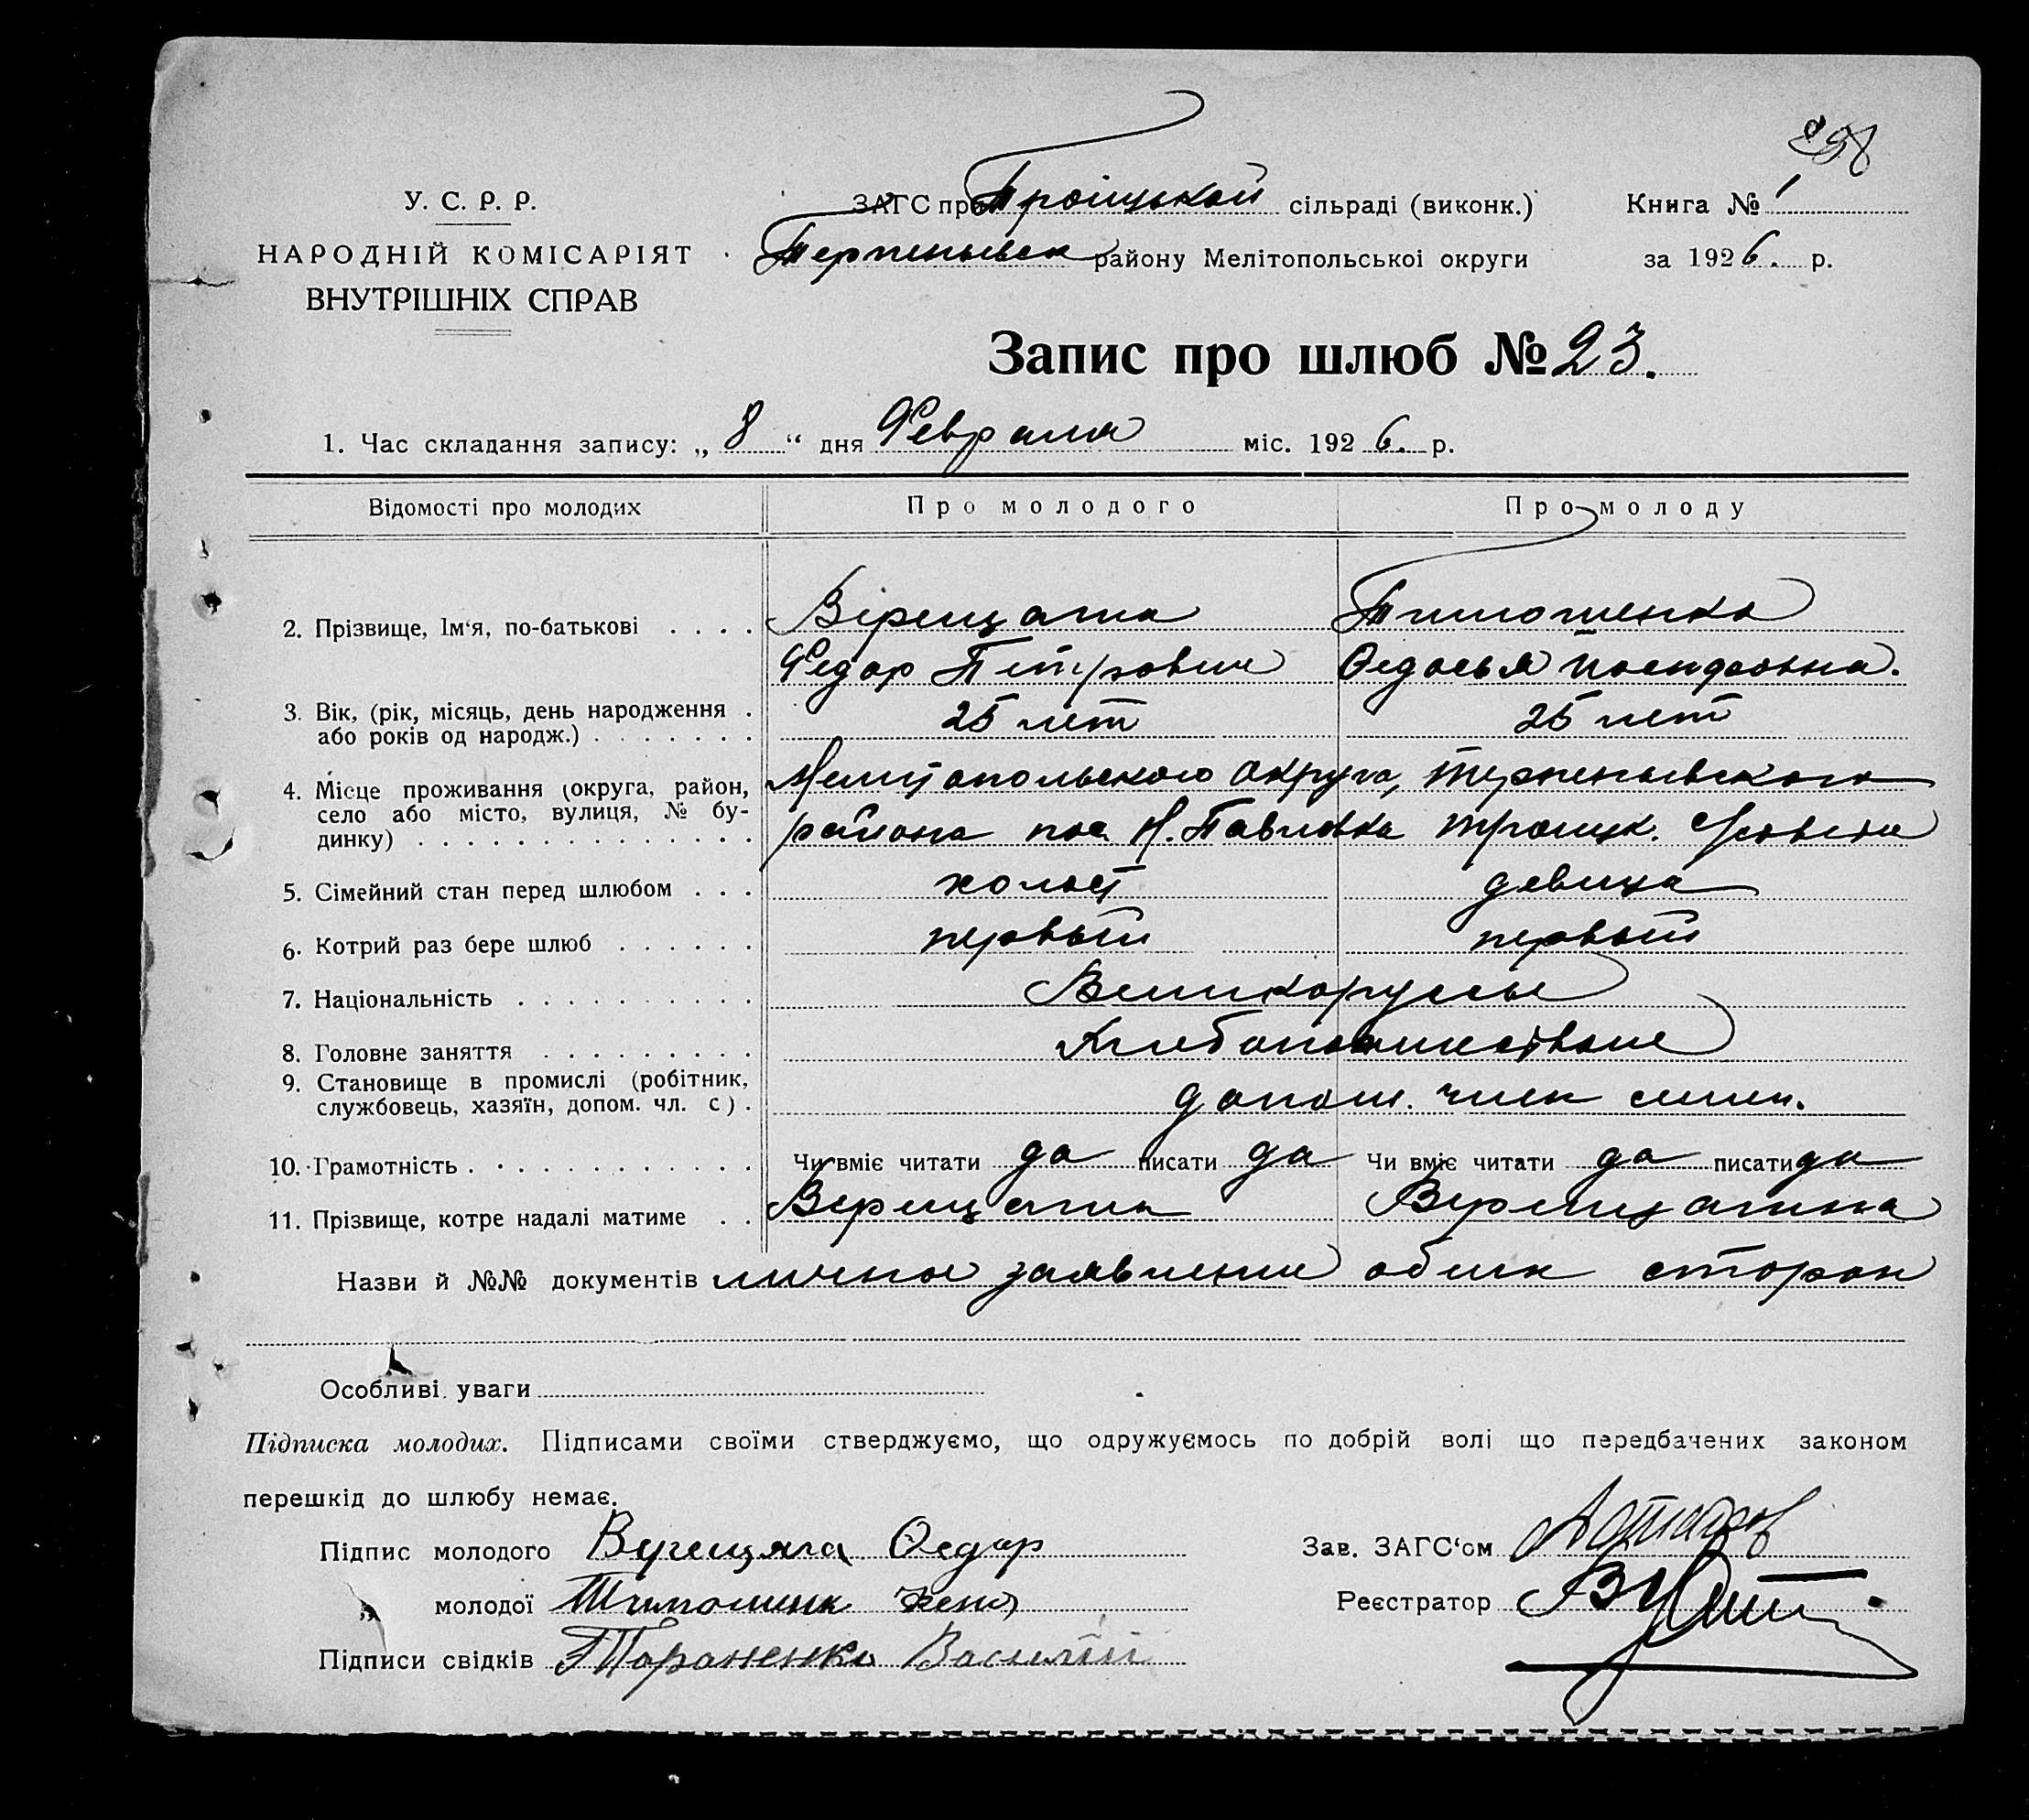 258
У. С. Р. Р.
НАРОДНІЙ КОМІСАРІЯТ
ВНУТРІШНІХ СПРАВ
ЗАГС при Троіцькой сільраді (виконк.)
Терпеньевск району Мелітопольськоі округи
Книга № 1
за 1926. р.
Запис про шлюб № 23.
1. Час складання запису: „ 8 “ дня Февраля міс. 1926. р.
Відомості про молодих Про молодого Про молоду
2. Прізвище, Ім‘я, по-батькові . . . . Вірещага Тимошенко
Федор Петрович Федосья
3. Вік, (рік, місяць, день народження . 25 лет 25 лет
або років од народж.) . . . . . . .
4. Місце проживання (округа, район, Мелитопольского округа, Терпеньевского
село або місто, вулиця, № бу- района пос. Н. Павловка Троицк. С/совета
динку) . . . . . . . . . . . . . .
5. Сімейний стан перед шлюбом . . . холост девица
6. Котрий раз бере шлюб . . . . . . первый первый
7. Національність . . . . . . . . . . Великоруссы
8. Головне заняття . . . . . . . . .
9. Становище в промислі (робітник,
службовець, хазяїн, допом. чл. с) . допом. член семьи.
10. Грамотність . . . . . . . . . . . . Чи вміє читати да писати да Чи вміє читати да писати да
11. Прізвище, котре надалі матиме . . Верещага
Назви й №№ документів личное заявление обеих сторон
Особливі уваги
Підписка молодих. Підписами своїми стверджуємо, що одружуємось по добрій волі що передбачених законом
перешкід до шлюбу немає.
Підпис молодого Верещяга Федор
„ молодої Тимошенк
Підписи свідків Тараненко Василий
Зав. ЗАГС‘ом
Реєстратор